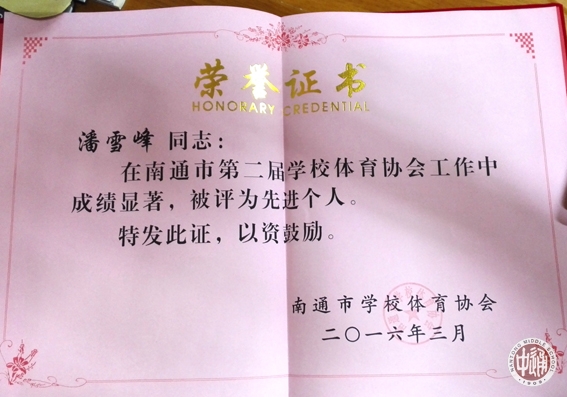 荣誉证书
HONORARY CREDENTIAL
潘雪峰 同志：
在南通市第二届学校体育协会工作中
成绩显著，被评为先进个人。
特发此证，以资鼓励。
南通市学校体育协会
二〇一六年三月
NANTONG MIDDLE SCHOOL
中通
1909